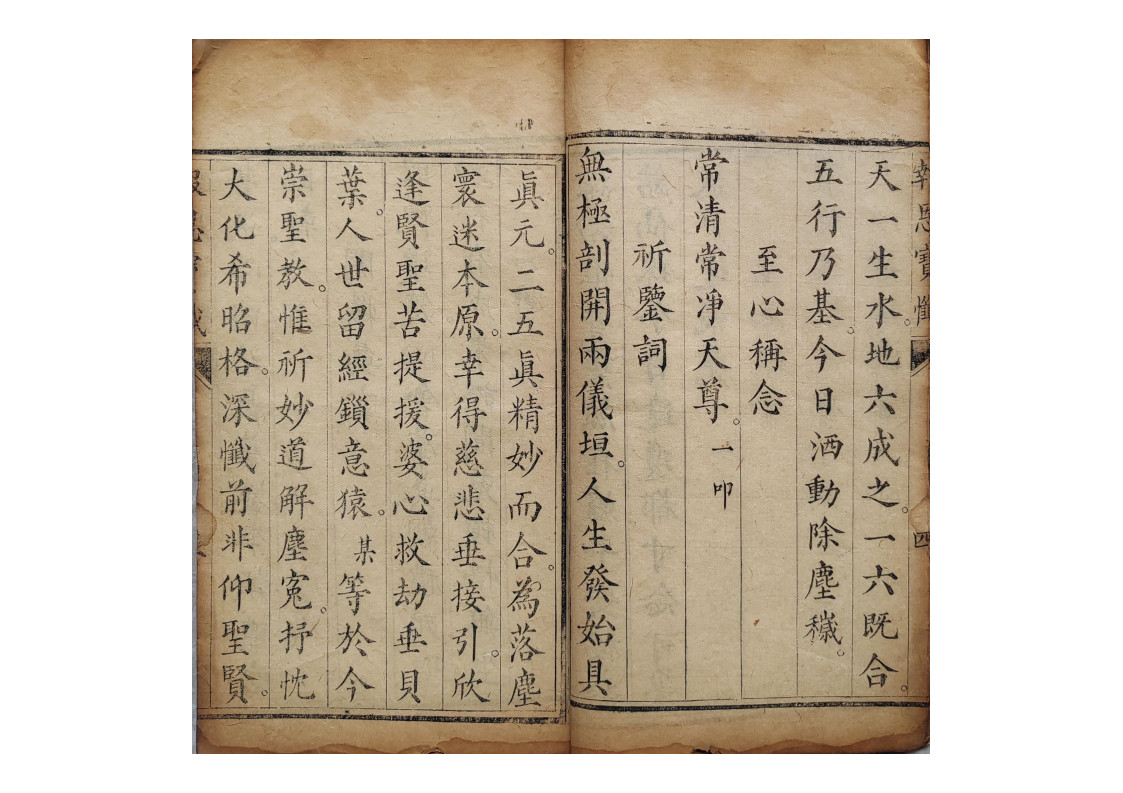 報恩寶懺
四
天一生水。地六成之。一六既合。
五行乃基。今日洒動除塵穢。
至心稱念
常清常凈天尊。一叩
祈鑒詞
無極剖開兩儀垣。人生發始具
眞元。二五眞精妙而合。為落塵
寰迷本原。幸得慈悲垂接引。欣
逢賢聖苦提援。婆心救劫垂貝
葉。人世留經鎖意猿。某等於今
崇聖教。惟祈妙道解塵寃。抒忱
大化希昭格。深懺前非仰聖賢。